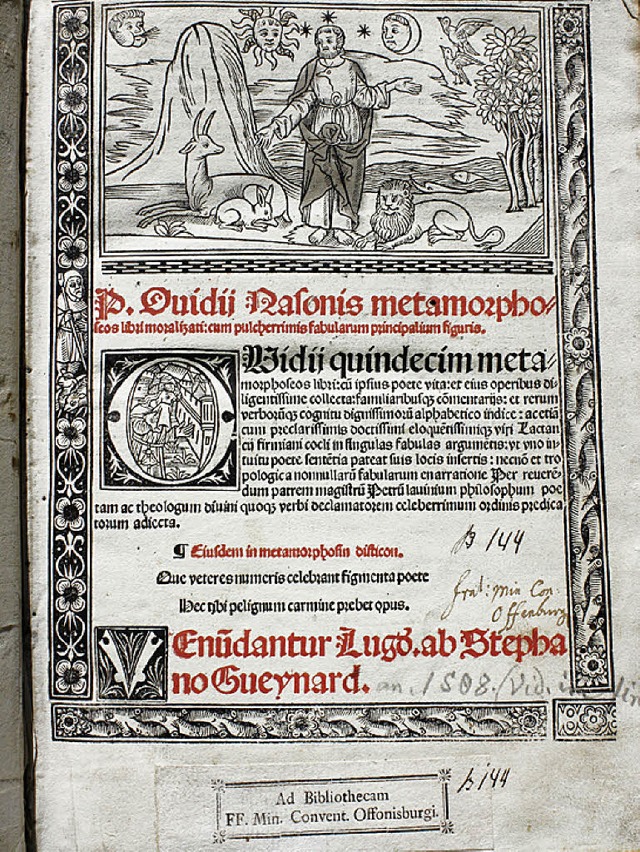 P. Ouidij Nasonis metamorpho⸗
seos libri moralizati: cum pulcherrimis fabularum principalium figuris.
OVidij quindecim meta⸗
morphoseos libri: cū ipsius poete vita: et eius operibus di⸗
ligentissime collecta: familiaribusq̃ cōmentarijs: et rerum
verborūq̃ cognitu dignissimorū alphabetico indice: ac etiā
cum preclarissimis doctissimi eloquētissimiq̃ viri Lactan
cij firmiani coeli in singulas fabulas argumētis: vt vno in⸗
tuitu poete sentētia pateat suis locis insertis: necnō et tro
pologica nonnullarū fabularum enarratione Per reuerē⸗
dum patrem magistrū Petrū lauinium philosophum poe
tam ac theologum diuini quoq̃ verbi declamatorem celeberrimum ordinis predica
torum adiecta.
¶ Eiusdem in metamorphosin disticon.
Que veteres numeris celebrant figmenta poete
Hec tibi pelignum carmine prebet opus.
B 144
frat: Min Con:
Offenburg
VEnūdantur Lugd. ab Stepha
no Gueynard.
an. 1508. (vid.
B 144
Ad Bibliothecam
FF. Min. Convent. Offonisburgi.